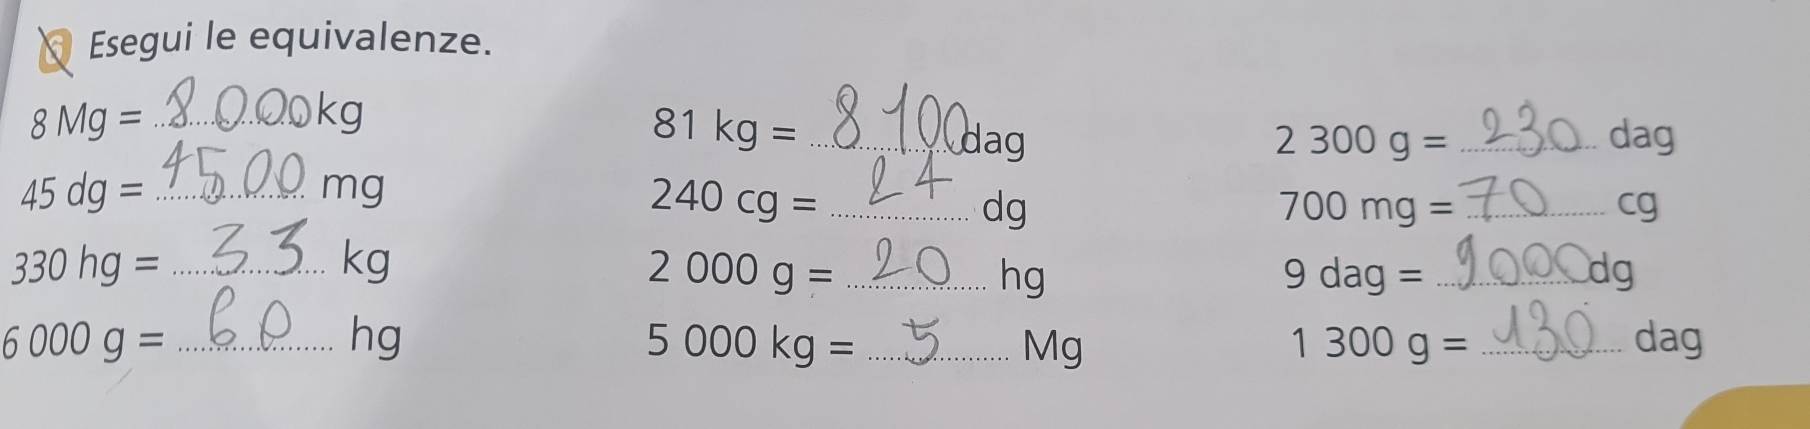 6 Esegui le equivalenze.
8 Mg = 8000 kg
45 dg = 4500 mg
330 hg = 33 kg
6 000 g = 60 hg
81 kg = 8100 dag
240 cg = 24 dg
2 000 g = 20 hg
5 000 kg = 5 Mg
2 300 g = 230 dag
700 mg = 70 cg
9 dag = 9000 dg
1 300 g = 130 dag